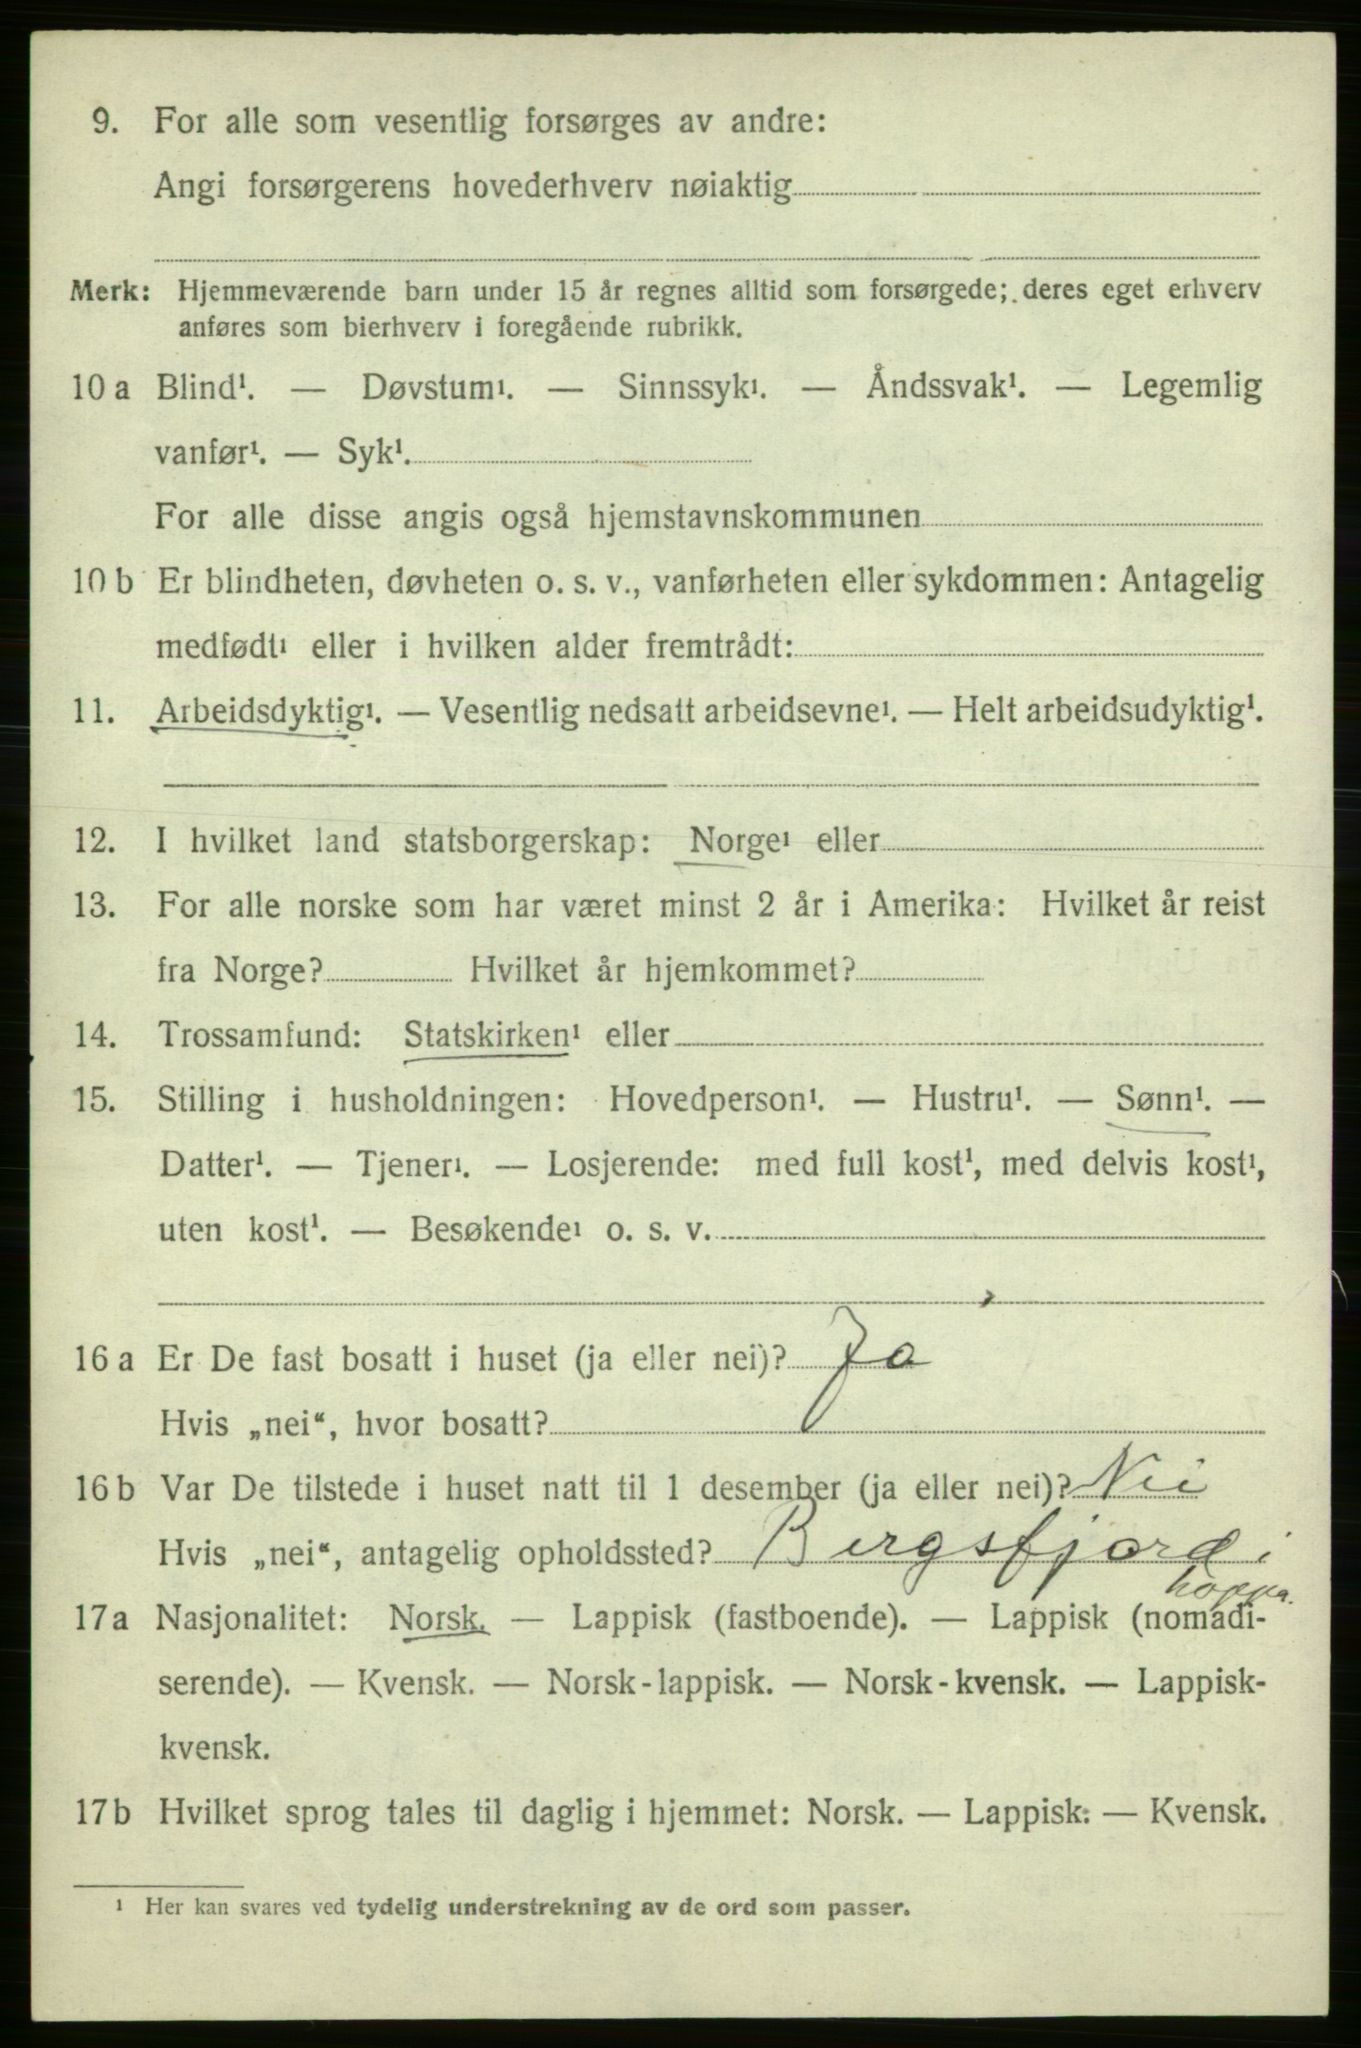 9. For alle som vesentlig forsørges av andre:
Angi forsørgerens hovederhverv nøiaktig
Merk: Hjemmeværende barn under 15 år regnes alltid som forsørgede; deres eget erhverv
anføres som bierhverv i foregående rubrikk.
10 a Blind¹. — Døvstum¹. — Sinnssyk¹. — Åndssvak¹. — Legemlig
vanfør¹. — Syk¹.
For alle disse angis også hjemstavnskommunen
10 b Er blindheten, døvheten o. s. v., vanførheten eller sykdommen: Antagelig
medfødt¹ eller i hvilken alder fremtrådt:
11. Arbeidsdyktig¹. — Vesentlig nedsatt arbeidsevne¹. — Helt arbeidsudyktig¹.
12. I hvilket land statsborgerskap: Norge¹ eller
13. For alle norske som har været minst 2 år i Amerika: Hvilket år reist
fra Norge? Hvilket år hjemkommet?
14. Trossamfund: Statskirken¹ eller
15. Stilling i husholdningen: Hovedperson¹. — Hustru¹. — Sønn¹. —
Datter¹. — Tjener¹. — Losjerende: med full kost¹, med delvis kost¹,
uten kost¹. — Besøkende¹ o. s. v.
16 a Er De fast bosatt i huset (ja eller nei)? Ja
Hvis „nei“, hvor bosatt?
16 b Var De tilstede i huset natt til 1 desember (ja eller nei)? Nei
Hvis „nei“, antagelig opholdssted? Bergsfjord i
loppa.
17 a Nasjonalitet: Norsk. — Lappisk (fastboende). — Lappisk (nomadi-
serende). — Kvensk. — Norsk-lappisk. — Norsk-kvensk. — Lappisk-
kvensk.
17 b Hvilket sprog tales til daglig i hjemmet: Norsk. — Lappisk. — Kvensk.
¹ Her kan svares ved tydelig understrekning av de ord som passer.